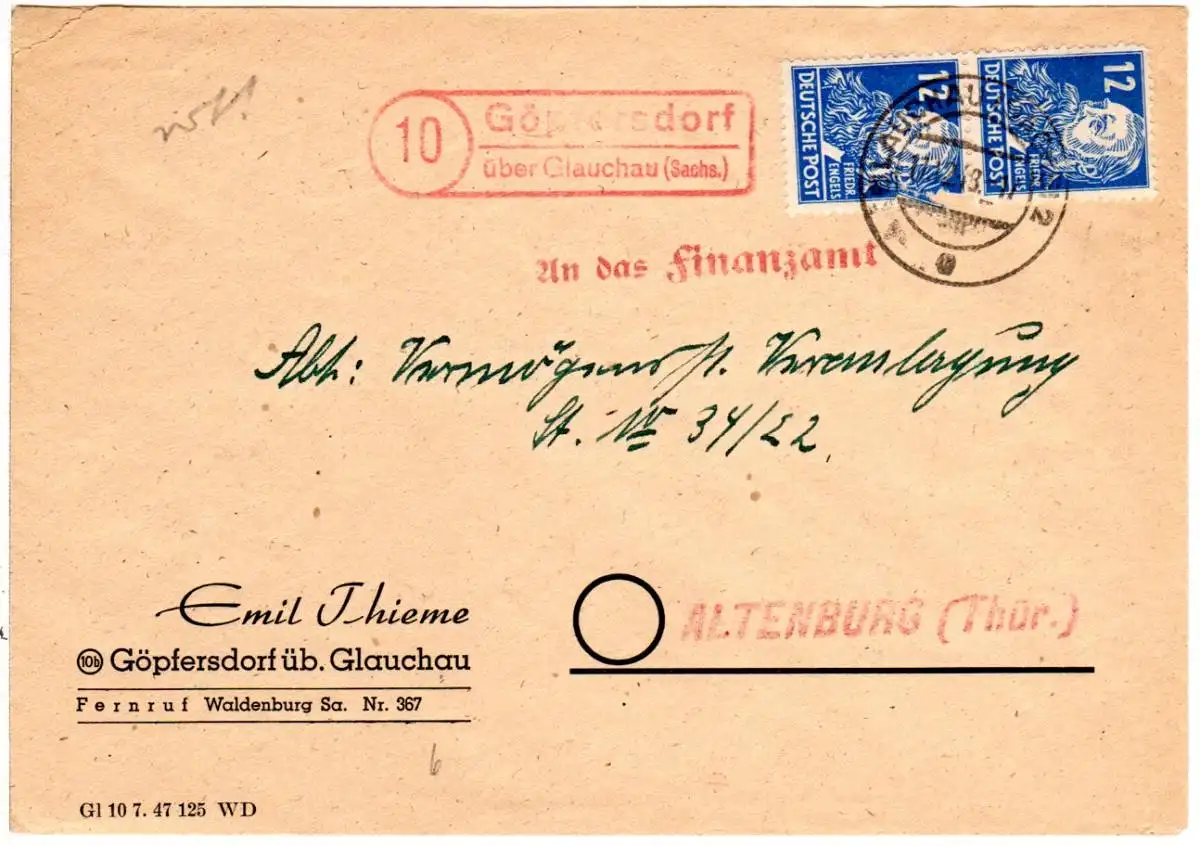 10
Göpfersdorf
über Glauchau (Sachs.)
12
DEUTSCHE POST
FRIEDR.
ENGELS
12
DEUTSCHE POST
FRIEDR.
ENGELS
An das Finanzamt
Abt: Vermögensst. Veranlagung
St. Nr 34/22
Emil Thieme
10b Göpfersdorf üb. Glauchau
Fernruf Waldenburg Sa. Nr. 367
ALTENBURG (Thür.)
6
Gl 10 7. 47 125 WD